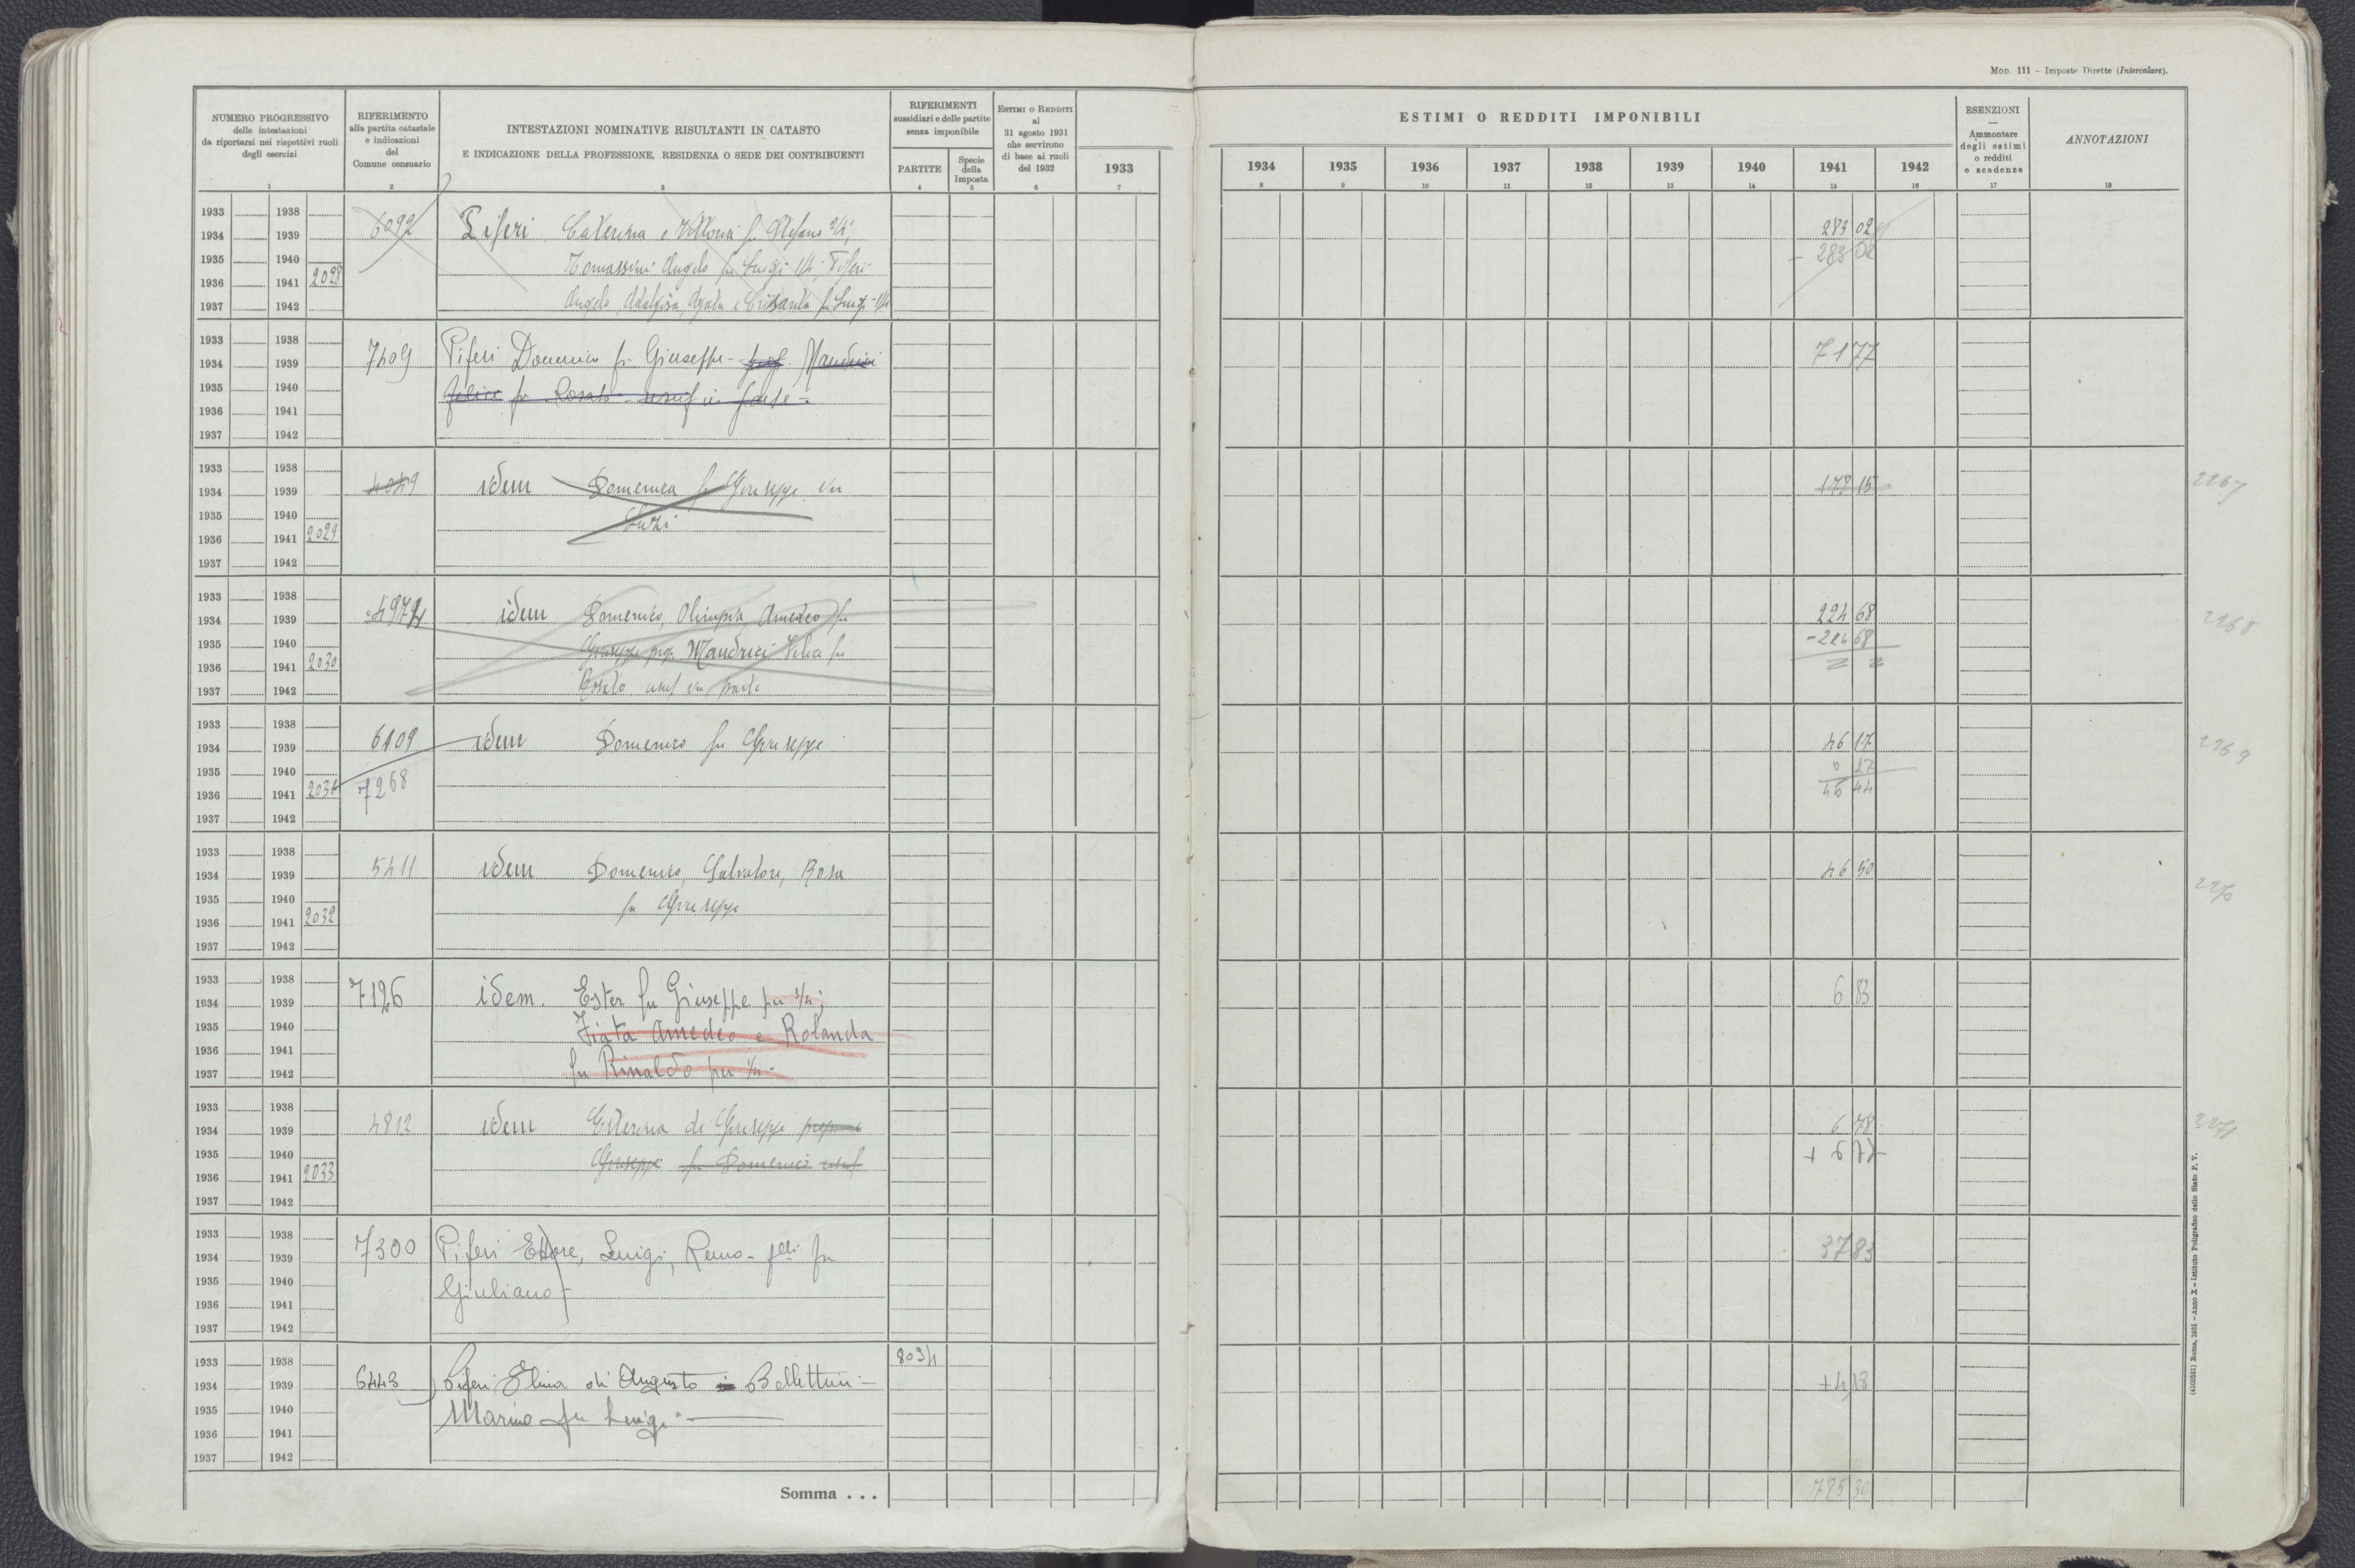 MOD. 111 – Imposte Dirette (Intercalare).
NUMERO PROGRESSIVO
delle intestazioni
da riportarsi nei rispettivi ruoli
degli esercizi
1
RIFERIMENTO
alla partita catastale
e indicazioni
del
Comune censuario
2
INTESTAZIONI NOMINATIVE RISULTANTI IN CATASTO
E INDICAZIONE DELLA PROFESSIONE, RESIDENZA O SEDE DEI CONTRIBUENTI
3
RIFERIMENTI
sussidiari e delle partite
senza imponibile
PARTITE
4
Specie
della
Imposta
5
ESTIMI O REDDITI
al
31 agosto 1931
che servirono
di base ai ruoli
del 1932
6
1933
7
ESTIMI O REDDITI IMPONIBILI
1934 1935 1936 1937 1938 1939 1940 1941 1942
8 9 10 11 12 13 14 15 16
ESENZIONI
—
Ammontare
degli estimi
o redditi
e scadenze
17
ANNOTAZIONI
18
1933 1938
1934 1939 6092 Piferi Caterina e Vittoria fu Stefano 2/4; 283 02
1935 1940 Tomassini Angelo fu Luigi 1/4, Piferi - 283 02
1936 1941 2028
1937 1942 Angelo, Adalgisa, Agata e Crisanta fu Luigi 1/4
1933 1938
1934 1939 7409 Piferi Domenico fu Giuseppe - prop. Mandrici 71 77
1935 1940 Felice fu Rosato usuf in parte =
1936 1941
1937 1942
1933 1938
1934 1939 4049 idem Domenica fu Giuseppe in 2267
1935 1940 Luzi
1936 1941 2029
1937 1942
1933 1938
1934 1939 4974 idem Domenico, Olimpia, Amedeo fu 224 68 2268
1935 1940 Giuseppe prop. Mandrici fu - 224 68
1936 1941 2030
1937 1942 Rosato usuf in parte
1933 1938
1934 1939 6109 idem Domenico fu Giuseppe 46 17 2269
1935 1940 7268 0 27
1936 1941 2031 46 44
1937 1942
1933 1938
1934 1939 5411 idem Domenico, Salvatore, Rosa 46 50 2270
1935 1940 fu Giuseppe
1936 1941 2032
1937 1942
1933 1938
1934 1939 7126 idem. Ester fu Giuseppe per 3/4; 6 83
1935 1940 Amedeo e Rolanda
1936 1941
1937 1942 fu Rinaldo per 1/4
1933 1938
1934 1939 4812 idem Esterina di Giuseppe prop. e 6 78 2271
1935 1940 Giuseppe fu Domenico usuf + 6 77
1936 1941 2033
1937 1942
1933 1938
1934 1939 7300 Piferi Ettore, Luigi, Remo - flli fu 37 83
1935 1940 Giuliano
1936 1941
1937 1942
1933 1938 8094
1934 1939 6443 Piferi Elina di Augusto in Bellettini - + 4 18
1935 1940 Marino fu Luigi
1936 1941
1937 1942
Somma . . . 785 30
(4103531) Roma, 1931 – Anno X – Istituto Poligrafico dello Stato P. V.